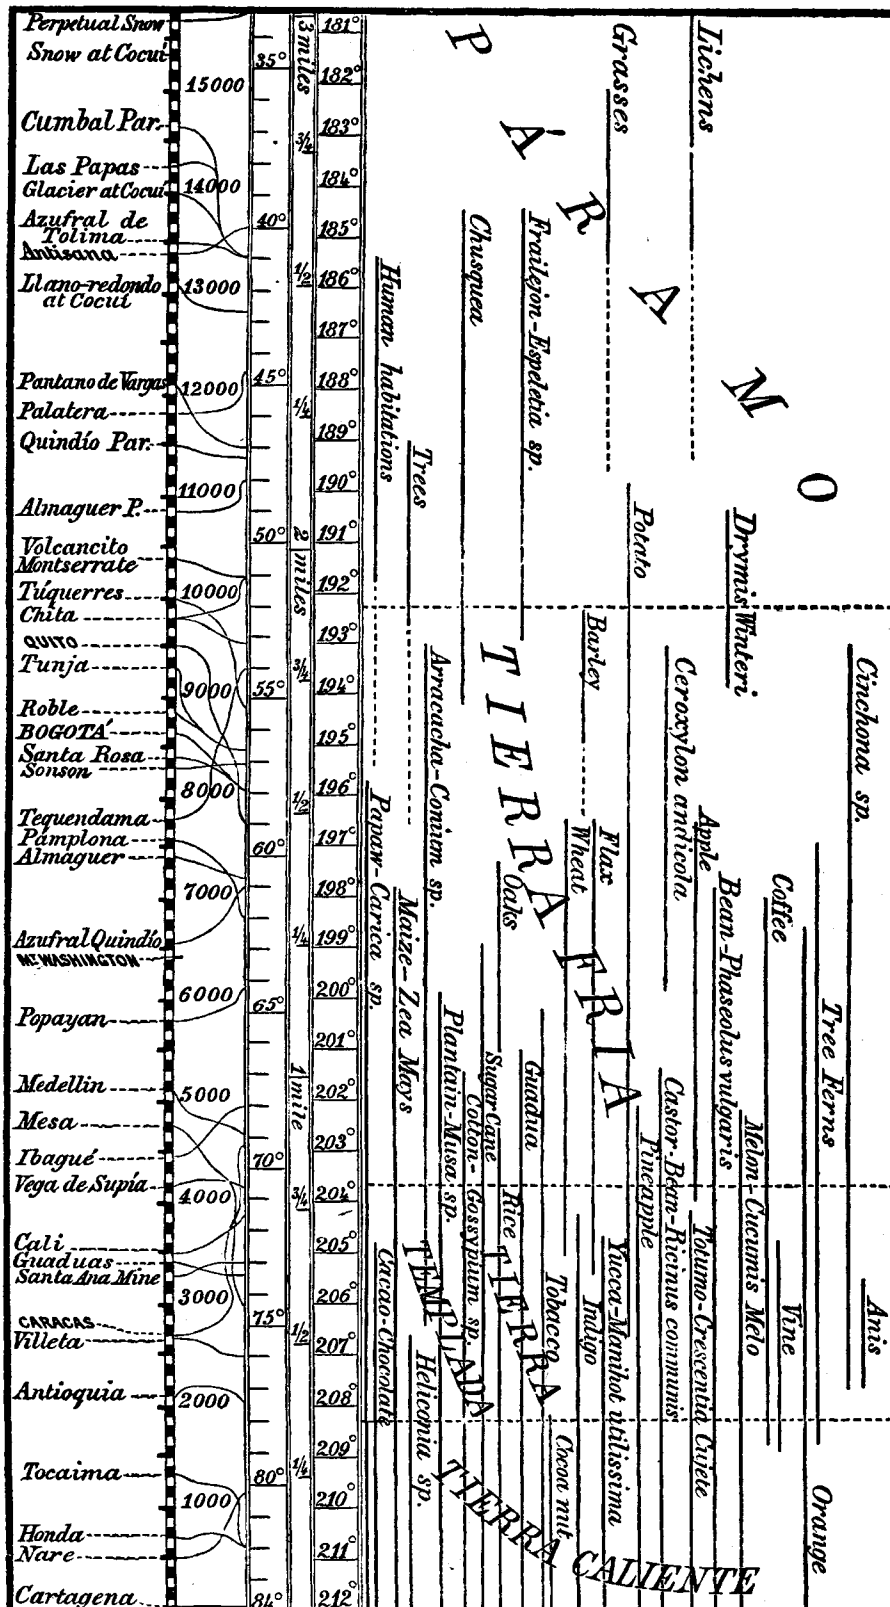 Perpetual Snow
Snow at Cocuí
Cumbal Par.
Las Papas
Glacier at Cocuí
Azufral de
Tolima
Antisana
Llano-redondo
at Cocuí
Pantano de Vargas
Palatera
Quindío Par.
Almaguer P.
Volcancito
Montserrate
Túquerres
Chita
QUITO
Tunja
Roble
BOGOTÁ
Santa Rosa
Sonson
Tequendama
Pamplona
Almaguer
Azufral Quindío
Mt WASHINGTON
Popayan
Medellin
Mesa
Ibagué
Vega de Supía
Cali
Guaduas
Santa Ana Mine
CARACAS
Villeta
Antioquia
Tocaima
Honda
Nare
Cartagena
15000
14000
13000
12000
11000
10000
9000
8000
7000
6000
5000
4000
3000
2000
1000
35°
40°
45°
50°
55°
60°
65°
70°
75°
80°
84°
3 miles
3/4
1/2
1/4
2 miles
3/4
1/2
1/4
1 mile
3/4
1/2
1/4
181°
182°
183°
184°
185°
186°
187°
188°
189°
190°
191°
192°
193°
194°
195°
196°
197°
198°
199°
200°
201°
202°
203°
204°
205°
206°
207°
208°
209°
210°
211°
212°
PÁRAMO
Lichens
Grasses
Frailejon-Espeletia sp.
Chusquea
Human habitations
Trees
Potato
Drymis Winteri
TIERRA FRIA
Barley
Cinchona sp.
Ceroxylon andicola
Arracacha-Conium sp.
Papaw-Carica sp.
Apple
Flax
Wheat
Oaks
Bean-Phaseolus vulgaris
Coffee
Maize-Zea Mays
Tree Ferns
Plantain-Musa sp.
Sugar Cane
Cotton-Gossypium sp.
Guadua
Castor-Bean-Ricinus communis
Pineapple
Melon-Cucumis Melo
Rice
TIERRA
TEMPLADA
Cacao-Chocolate
Heliconia sp.
Tobacco
Indigo
Yucca-Manihot utilissima
Totumo-Crescentia Cujete
Vine
Anis
Cocoa nut
Orange
TIERRA CALIENTE